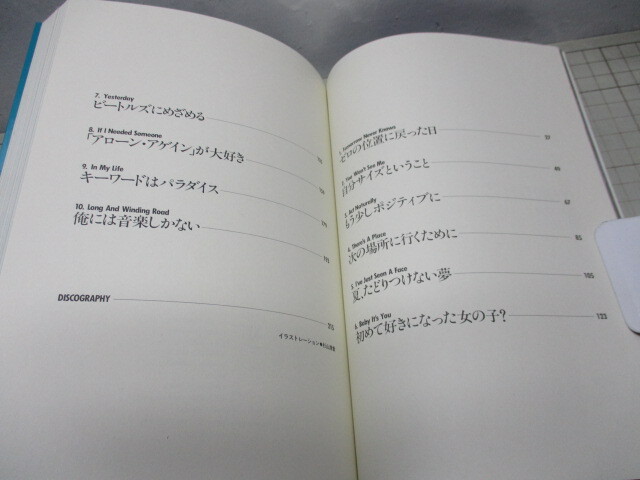 1. Tomorrow Never Knows
ゼロの位置に戻った日
37
2. You Won't See Me
自分サイズということ
49
3. Act Naturally
もう少しポジティブに
62
4. There's A Place
次の場所に行くために
85
5. I've Just Seen A Face
夏、たどりつけない夢
105
6. Baby It's You
初めて好きになった女の子?
123
7. Yesterday
ビートルズにめざめる
8. If I Needed Someone
「アローン・アゲイン」が大好き
9. In My Life
キーワードはパラダイス
10. Long And Winding Road
俺には音楽しかない
195
DISCOGRAPHY
215
イラストレーション●